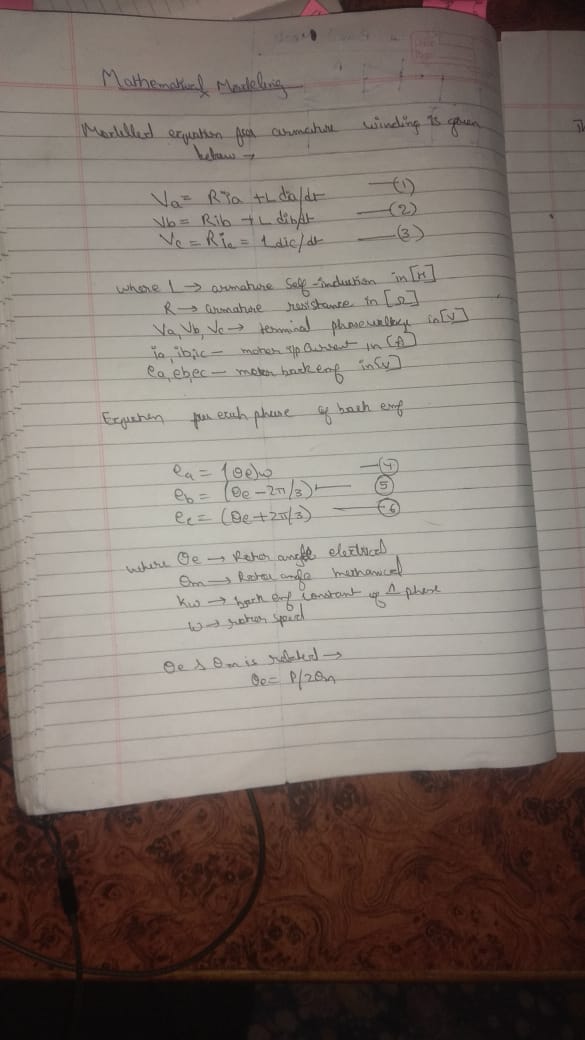 Mathematical Modeling
Modelled equation for armature winding is given
below →
Va = Ria + L dia/dt —(1)
Vb = Rib + L dib/dt —(2)
Vc = Ric = Ldic/dt —(3)
where L → armature Self-induction in [H]
R → armature resistance in [Ω]
Va, Vb, Vc → terminal phase voltage in [V]
ia, ib, ic — motor i/p Current in [A]
ea, eb, ec — motor back emf in [V]
Equation for each phase of back emf
ea = (θe)ω —(4)
eb = (θe - 2π/3) — (5)
ec = (θe + 2π/3) — (6)
where θe → Rotor angle electrical
θm → Rotor angle mechanical
Kw → back emf constant of 1 phase
ω → rotor speed
θe & θm is related →
θe = P/2θm